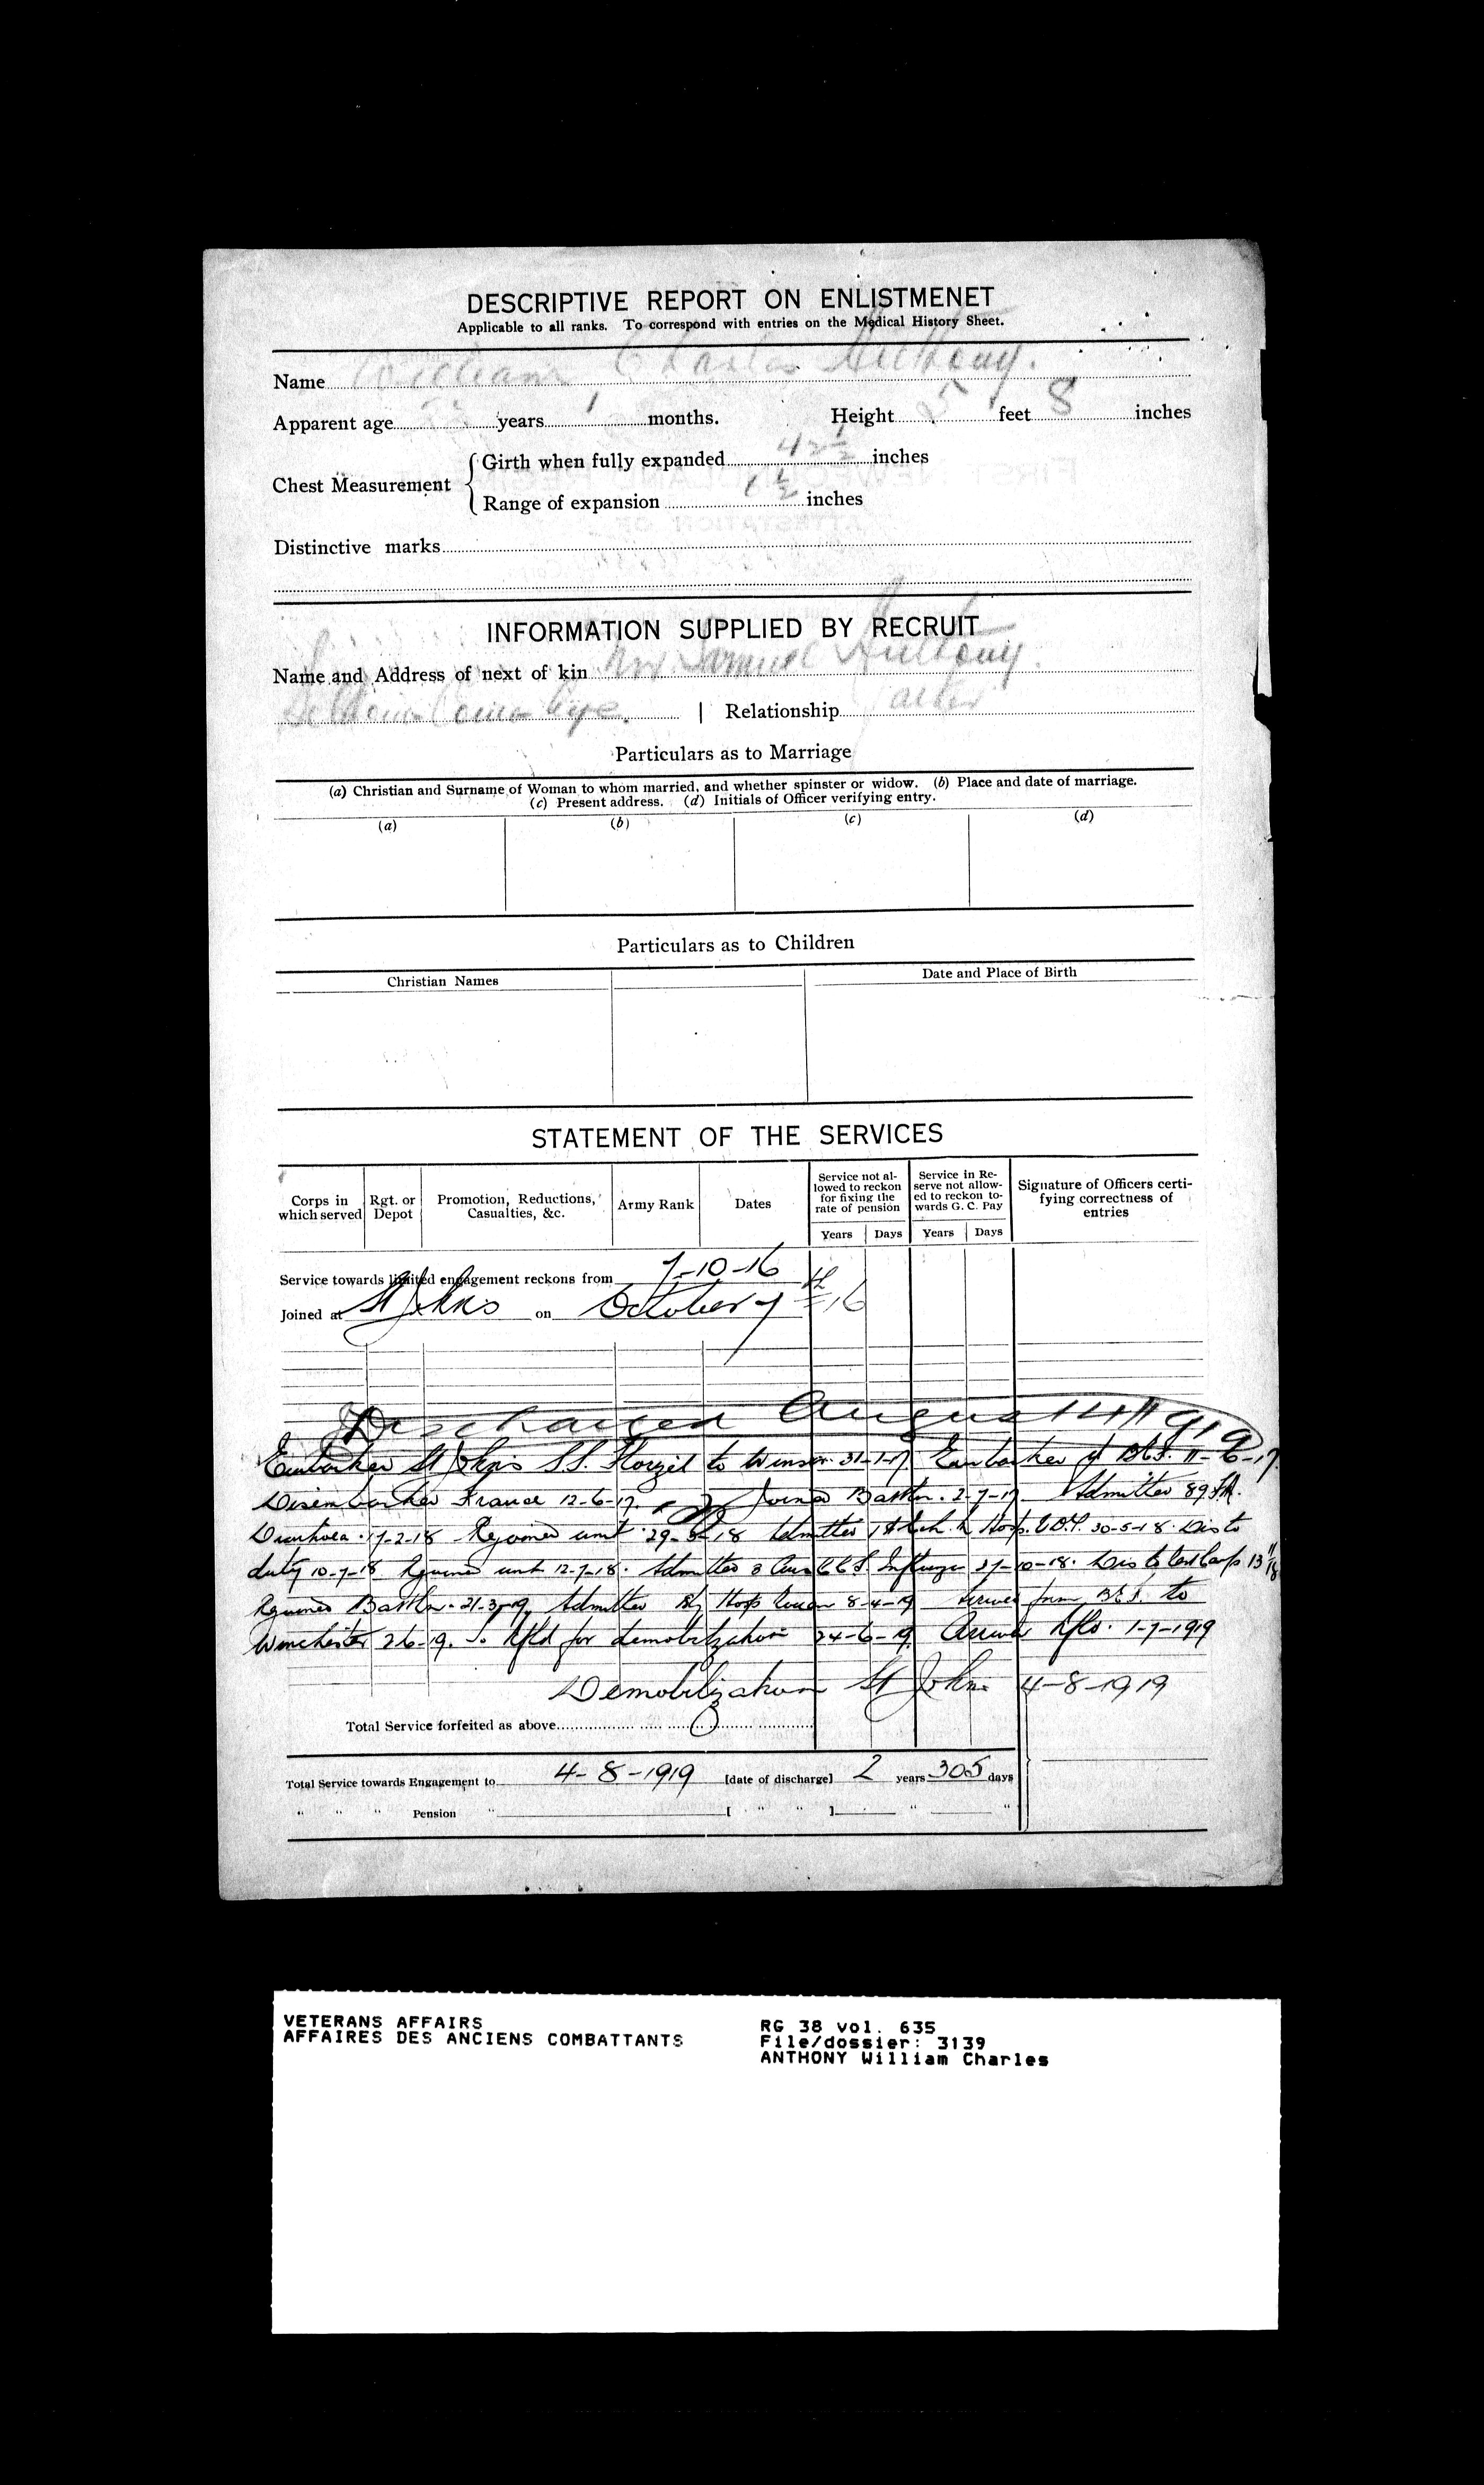 DESCRIPTIVE REPORT ON ENLISTMENET
Applicable to all ranks. To correspond with entries on the Medical History Sheet.
Name William Charles Anthony.
Apparent age years 1 months. Height 5 feet 8 inches
Chest Measurement { Girth when fully expanded 42 1/2 inches
Range of expansion 1 1/2 inches
Distinctive marks
INFORMATION SUPPLIED BY RECRUIT
Name and Address of next of kin Mr. Samuel Anthony.
Seldom Come Bye. | Relationship Father
Particulars as to Marriage
(a) Christian and Surname of Woman to whom married, and whether spinster or widow. (b) Place and date of marriage.
(c) Present address. (d) Initials of Officer verifying entry.
(a) (b) (c) (d)
Particulars as to Children
Christian Names Date and Place of Birth
STATEMENT OF THE SERVICES
Corps in which served Rgt. or Depot Promotion, Reductions, Casualties, &c. Army Rank Dates Service not allowed to reckon for fixing the rate of pension Service in Reserve not allowed to reckon towards G. C. Pay Signature of Officers certifying correctness of entries
Years Days Years Days
Service towards limited engagement reckons from 7-10-16
Joined at St Johns on October 7th 16
Discharged August 4th 1919
Embarked St John's S.S. Florizel to 31-1-17. Embarked B.E.F. 11-6-17.
Disembarked France 12-6-17. Joined Battln. 2-7-17 Admitted 89 F.A.
17-2-18 Rejoined unit 29- -18 Admitted Hosp. 30-5-18. Dis to
duty 10-7-18 Rejoined unit 12-7-18. Admitted 3 Aus C.C.S. Influenza 27-10-18. Dis to Camp 13/11/18
Rejoined Battln. 21-3-19. Admitted Hosp 8-4-19 from B.E.F. to
Winchester 2-6-19. To Nfld for demobilization 24-6-19. Arrived Nfld. 1-7-1919
Demobilization St Johns 4-8-1919
Total Service forfeited as above
Total Service towards Engagement to 4-8-1919 [date of discharge] 2 years 305 days
" " " Pension " [ " " ] " "
VETERANS AFFAIRS
AFFAIRES DES ANCIENS COMBATTANTS
RG 38 vol. 635
File/dossier: 3139
ANTHONY William Charles